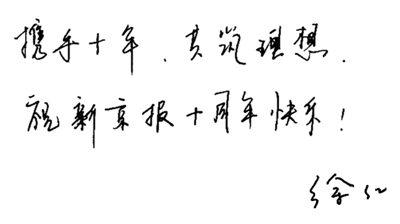 携手十年、共筑理想、
祝新京报十周年快乐！
徐